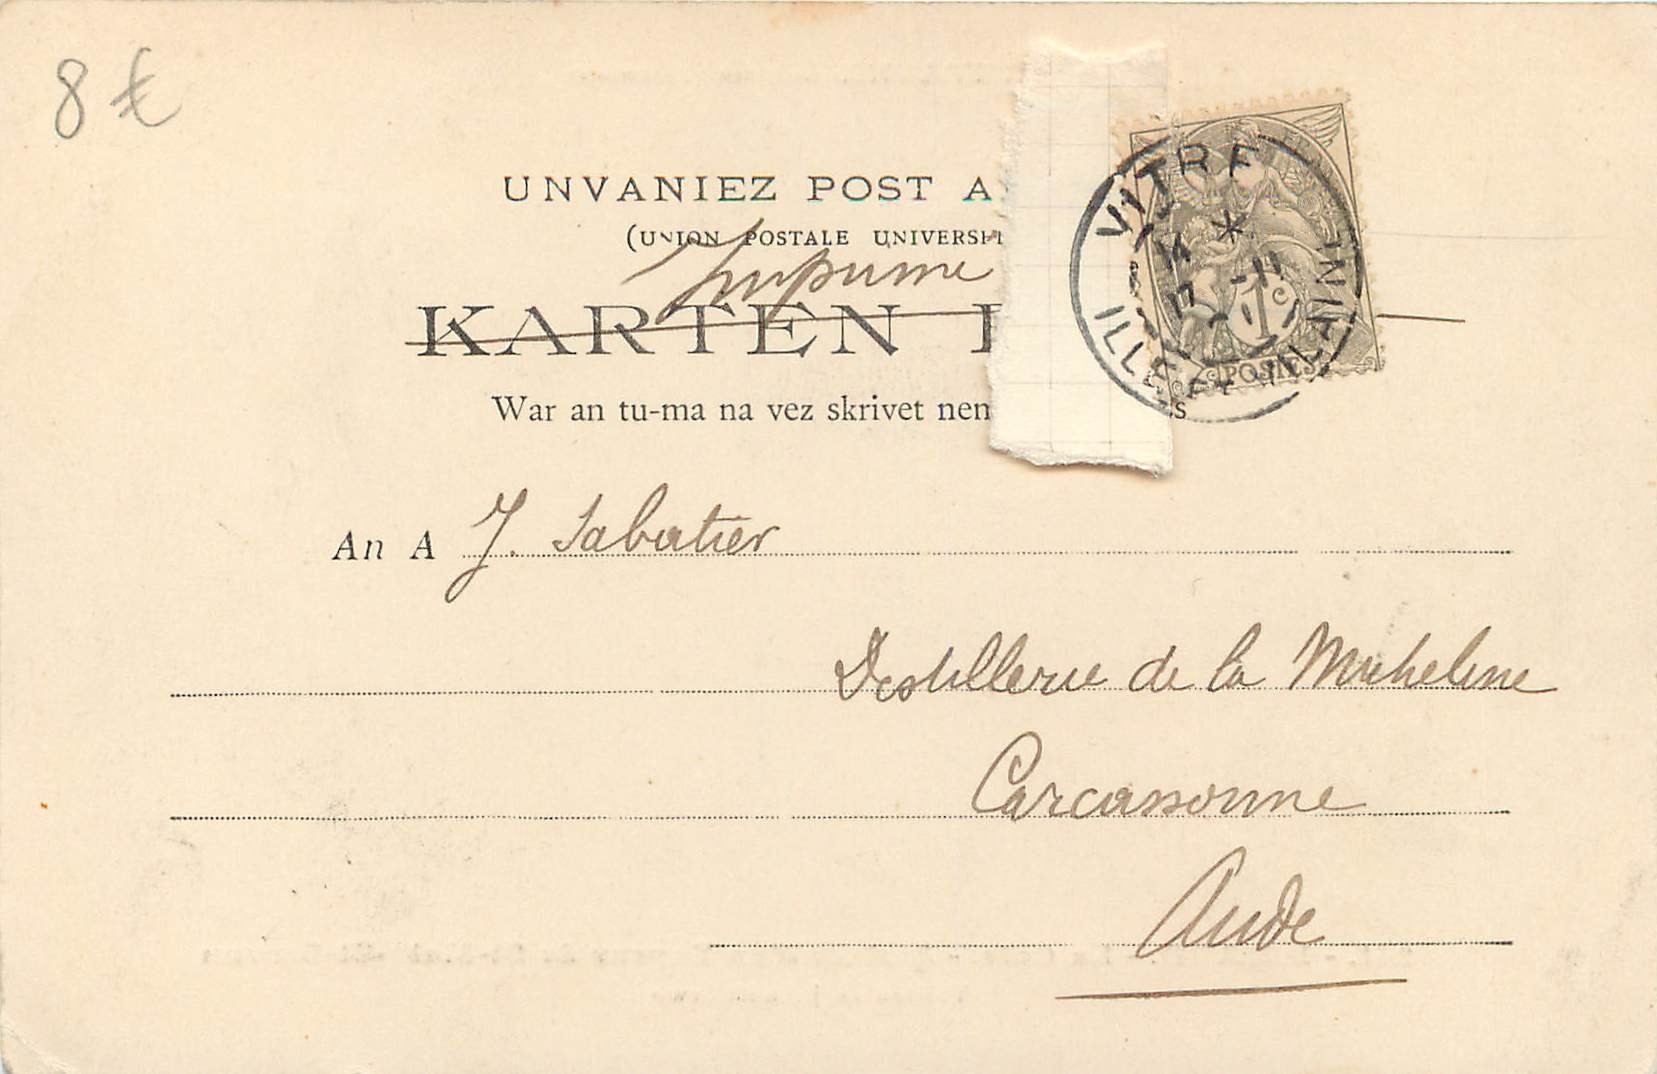 8 €
UNVANIEZ POST A
(UNION POSTALE UNIVERSEL
Imprimé
KARTEN
War an tu-ma na vez skrivet nem
s
VITRE
ILLE-ET-VILAINE
1c
POSTES
An A J. Sabatier
Distillerie de la Micheline
Carcassonne
Aude